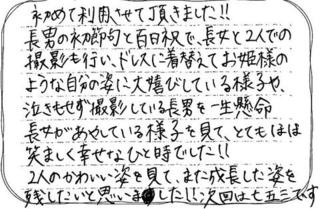 初めて利用させて頂きました!!
長男の初節句と百日祝で、長女と2人での
撮影も行い、ドレスに着替えてお姫様の
ような自分の姿に大喜びしている様子や、
泣きもせず撮影している長男を一生懸命
長女があやしている様子を見て、とてもほほ
笑ましく幸せなひと時でした!!
2人のかわいい姿を見て、また成長した姿を
残したいと思いました!!次回は七五三です